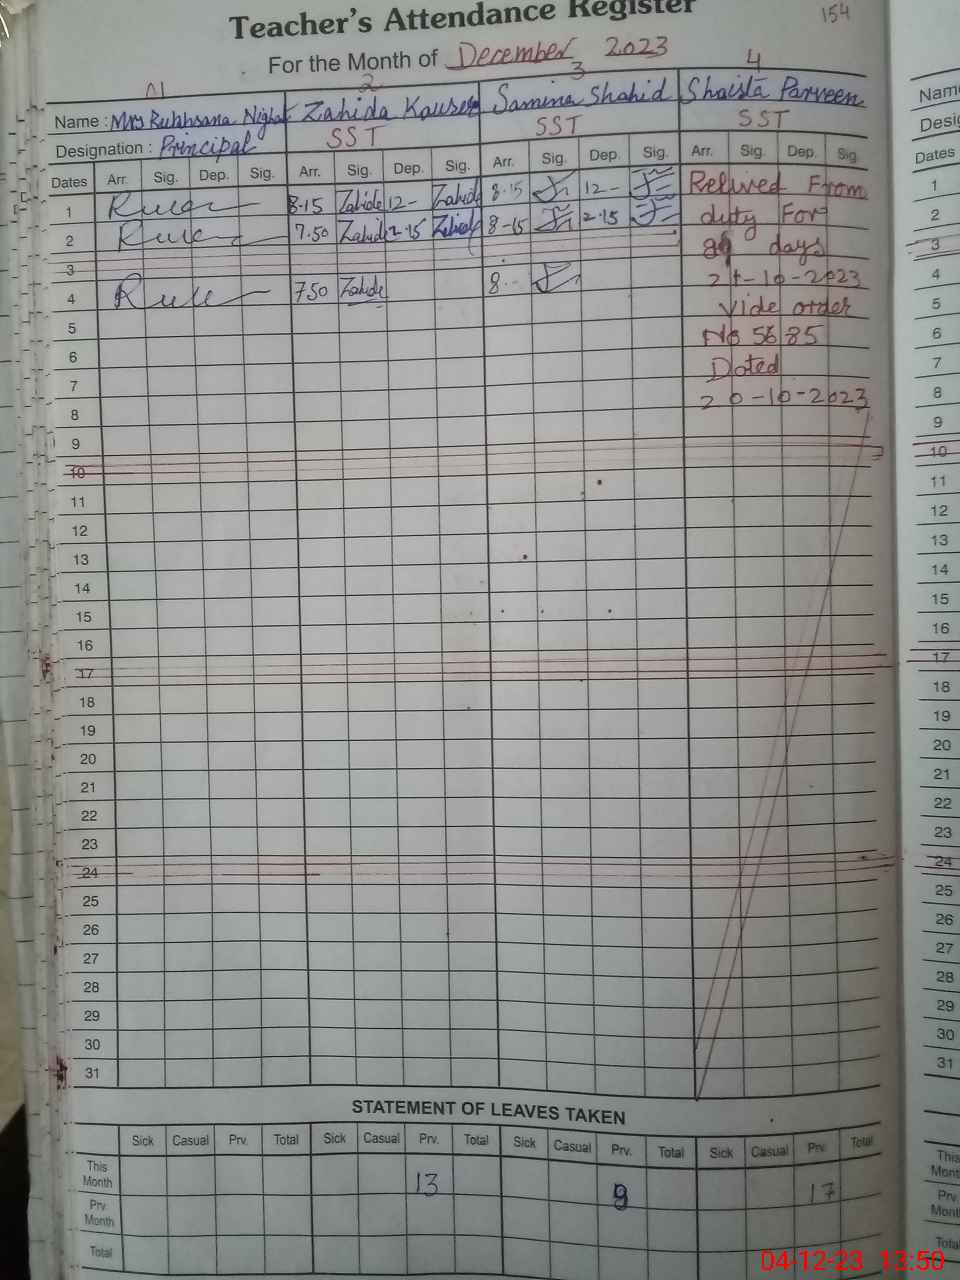 Teacher's Attendance Register
154
For the Month of December 2023
01 2 3 4
Name : Mrs Rukhsana Nighat Zahida Kauser Samina Shahid Shaista Parveen
Designation : Principal SST SST SST
Dates Arr. Sig. Dep. Sig. Arr. Sig. Dep. Sig. Arr. Sig. Dep. Sig. Arr. Sig. Dep. Sig
1 8.15 Zahida 12- Zahida 8.15 12- Relived From
2 7.50 Zahida 2.15 Zahida 8-15 2.15 duty For
3 89 days
4 750 Zahida 8.. 21-10-2023
5 Vide order
6 No 5685
7 Dated
8 20-10-2023
9
10
11
12
13
14
15
16
17
18
19
20
21
22
23
24
25
26
27
28
29
30
31
STATEMENT OF LEAVES TAKEN
Sick Casual Prv. Total Sick Casual Prv. Total Sick Casual Prv. Total Sick Casual Prv. Total
This Month 13 9 17
Prv. Month
Total
Name
Desig
Dates
1
2
3
4
5
6
7
8
9
10
11
12
13
14
15
16
17
18
19
20
21
22
23
24
25
26
27
28
29
30
31
This
Month
Prv.
Month
Total
04-12-23 13:50